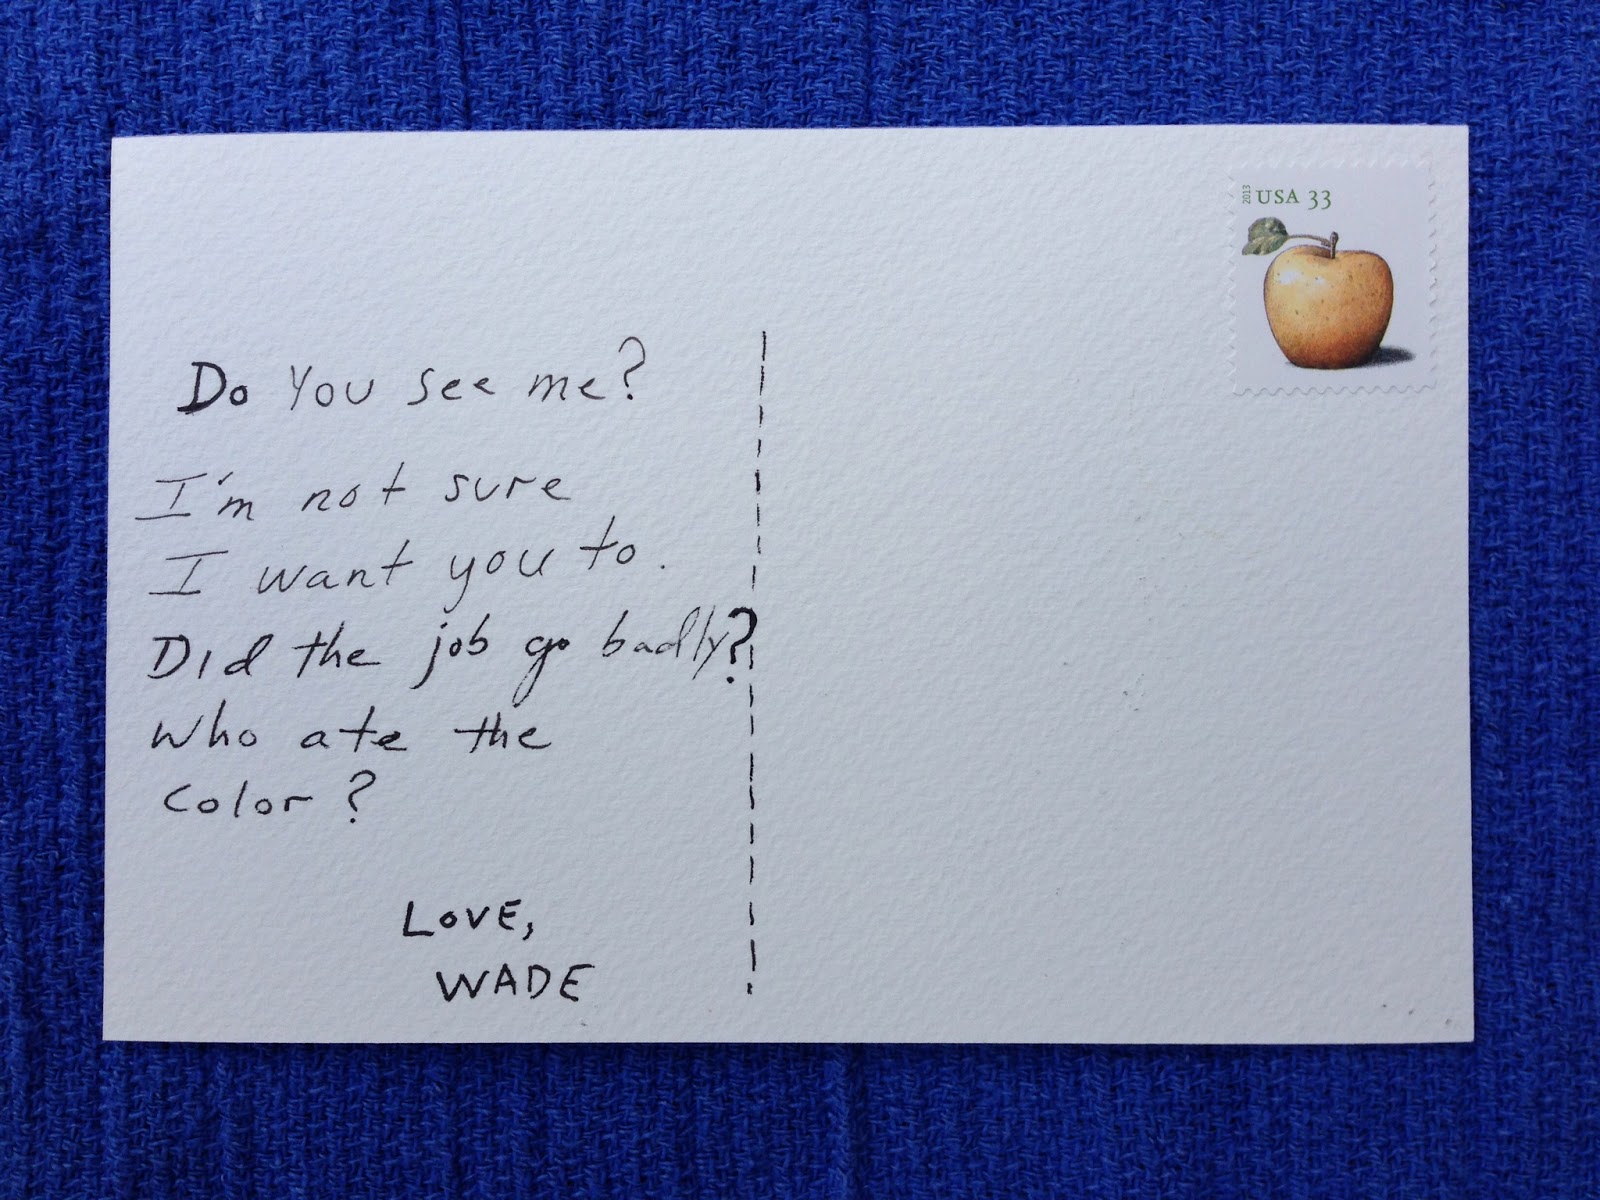 2013 USA 33
Do you see me?
I'm not sure
I want you to.
Did the job go badly?
Who ate the
color?
LOVE,
WADE